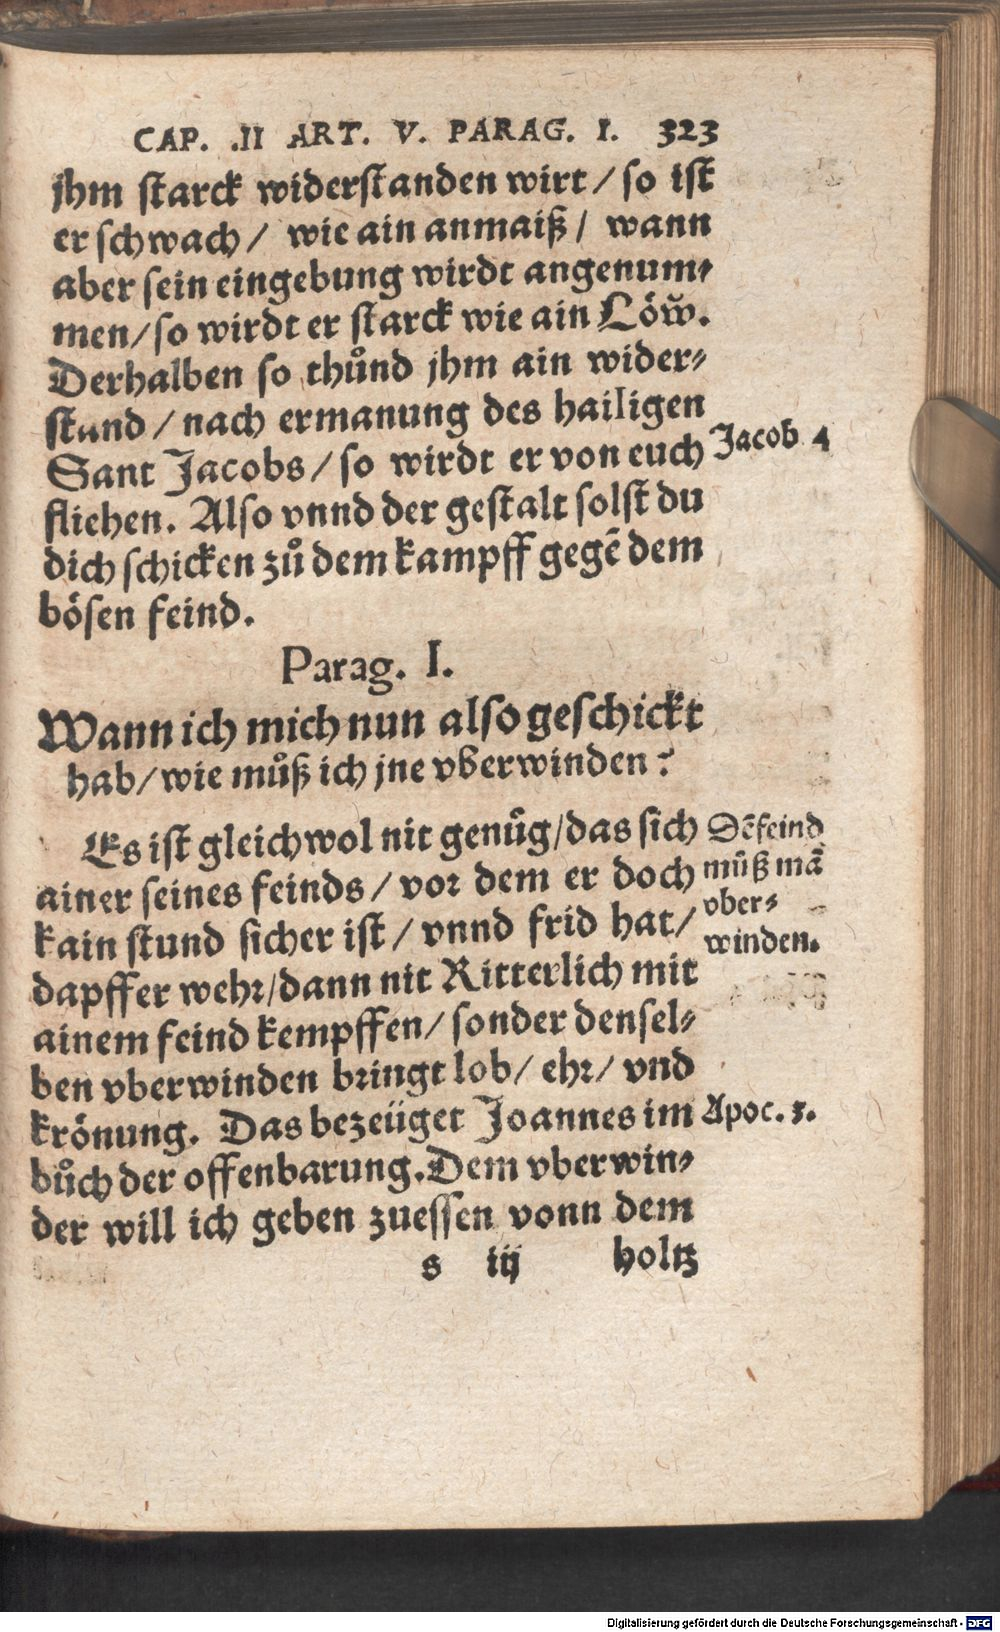 CAP. .II ART. V. PARAG. I. 323
jhm starck widerstanden wirt / so ist
er schwach / wie ain anmaiß / wann
aber sein eingebung wirdt angenum⸗
men / so wirdt er starck wie ain Löw̆.
Derhalben so thůnd jhm ain wider⸗
stand / nach ermanung des hailigen
Sant Jacobs / so wirdt er von euch
Jacob 4
fliehen. Also vnnd der gestalt solst du
dich schicken zů dem kampff gegē dem
bösen feind.
Parag. I.
Wann ich mich nun also geschickt
hab / wie můß ich jne vberwinden?
Es ist gleichwol nit genůg / das sich
ainer seines feinds / vor dem er doch
kain stund sicher ist / vnnd frid hat /
dapffer wehr / dann nit Ritterlich mit
ainem feind kempffen / sonder densel⸗
ben vberwinden bringt lob / ehr / vnd
krönung. Das bezeüget Joannes im
bůch der offenbarung. Dem vberwin⸗
der will ich geben zuessen vonn dem
Dē feind
můß mā
vber⸗
winden.
Apoc. 2.
s iij holtz
Digitalisierung gefördert durch die Deutsche Forschungsgemeinschaft - DFG